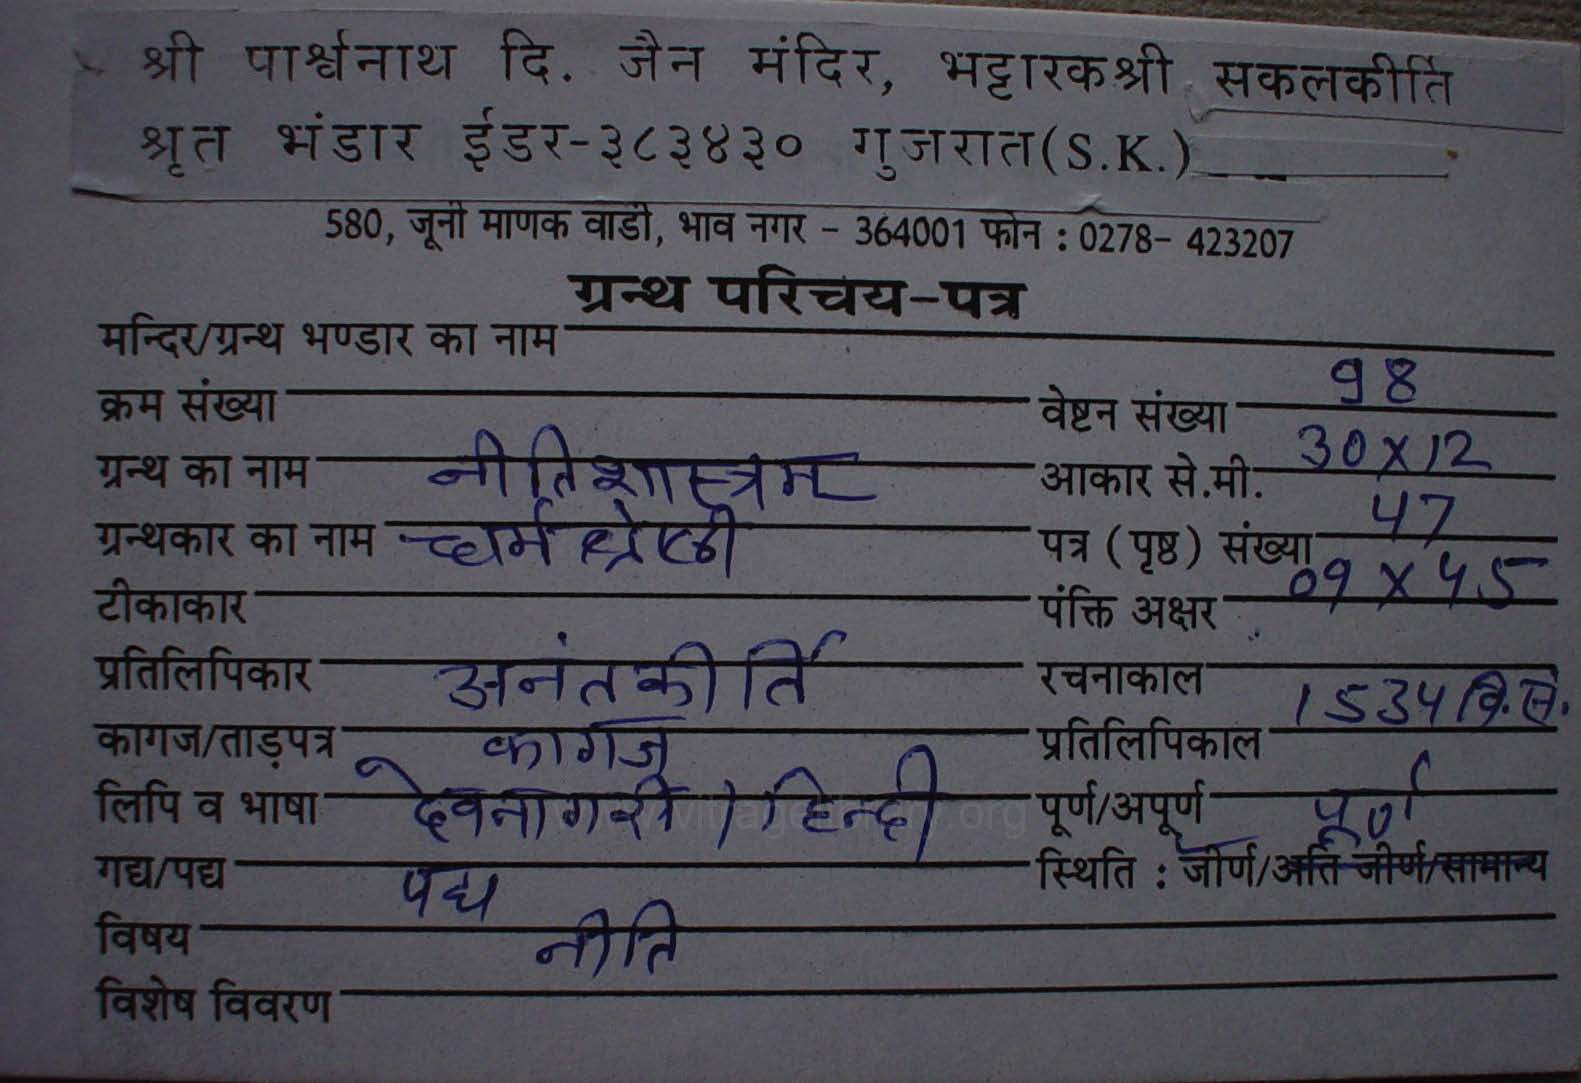 श्री पार्श्वनाथ दि. जैन मंदिर, भट्टारकश्री सकलकीर्ति
श्रृत भंडार ईडर-३८३४३० गुजरात(S.K.)
580, जूनी माणक वाडी, भाव नगर - 364001 फोन : 0278- 423207
ग्रन्थ परिचय-पत्र
मन्दिर/ग्रन्थ भण्डार का नाम
क्रम संख्या वेष्टन संख्या 98
ग्रन्थ का नाम नीतिशास्त्रम आकार से.मी. 30x12
ग्रन्थकार का नाम धर्म श्रेष्ठी पत्र ( पृष्ठ ) संख्या 47
टीकाकार पंक्ति अक्षर 09 x 45
प्रतिलिपिकार अनंतकीर्ति रचनाकाल
कागज/ताड़पत्र कागज प्रतिलिपिकाल 1534 वि.सं.
लिपि व भाषा देवनागरी / हिन्दी पूर्ण/अपूर्ण पूर्ण
गद्य/पद्य पद्य स्थिति : जीर्ण/अति जीर्ण/सामान्य
विषय नीति
विशेष विवरण